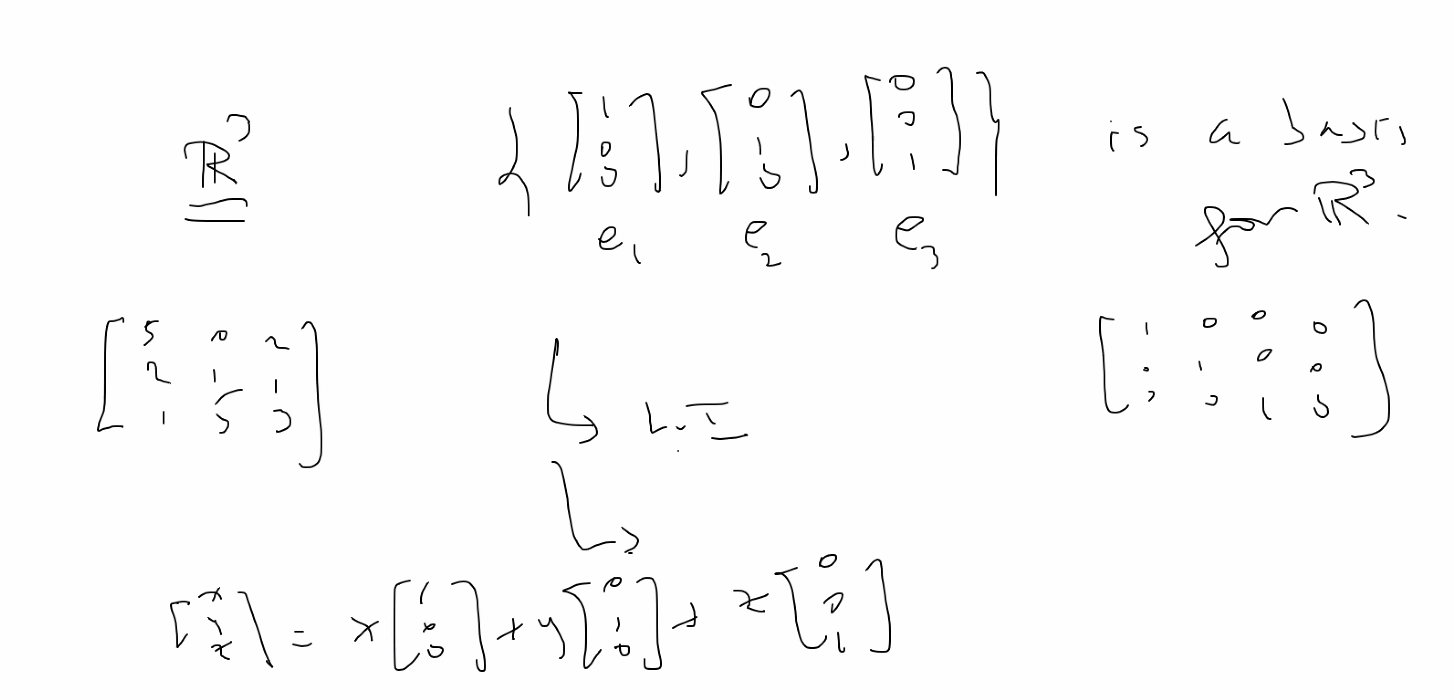 ℝ³ { [1 0 0], [0 1 0], [0 0 1] } is a basis
e₁ e₂ e₃ for ℝ³.
[5 0 2; 2 1 1; 1 5 3] ↳ L.I [1 0 0 0; 0 1 0 0; 0 0 1 0]
↳
[x y z] = x[1 0 0] + y[0 1 0] + z[0 0 1]